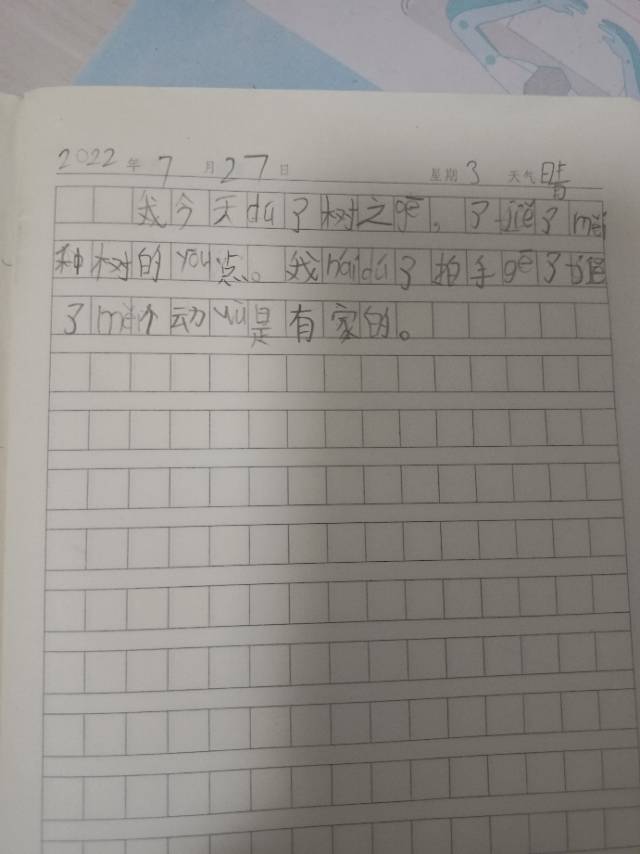 2022年 7月27日 星期3 天气晴
我今天dú了树之gē，了jiě了měi
种树的yōu点。我hái dú了拍手gē了jiě
了měi个动wù是有家的。